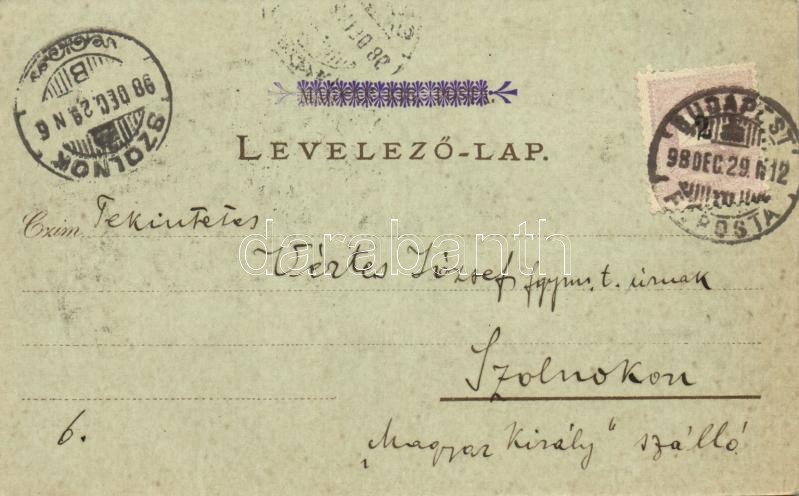 SZOLNOK
98 DEC. 29 N 6
B
BUDAPEST
98 DEC. 29. N 12
FŐPOSTA
2
LEVELEZŐ-LAP.
Czim Tekintetes
Vértes József fgymn. t. úrnak
Szolnokon
6.
„Magyar Király" szálló
darabanth